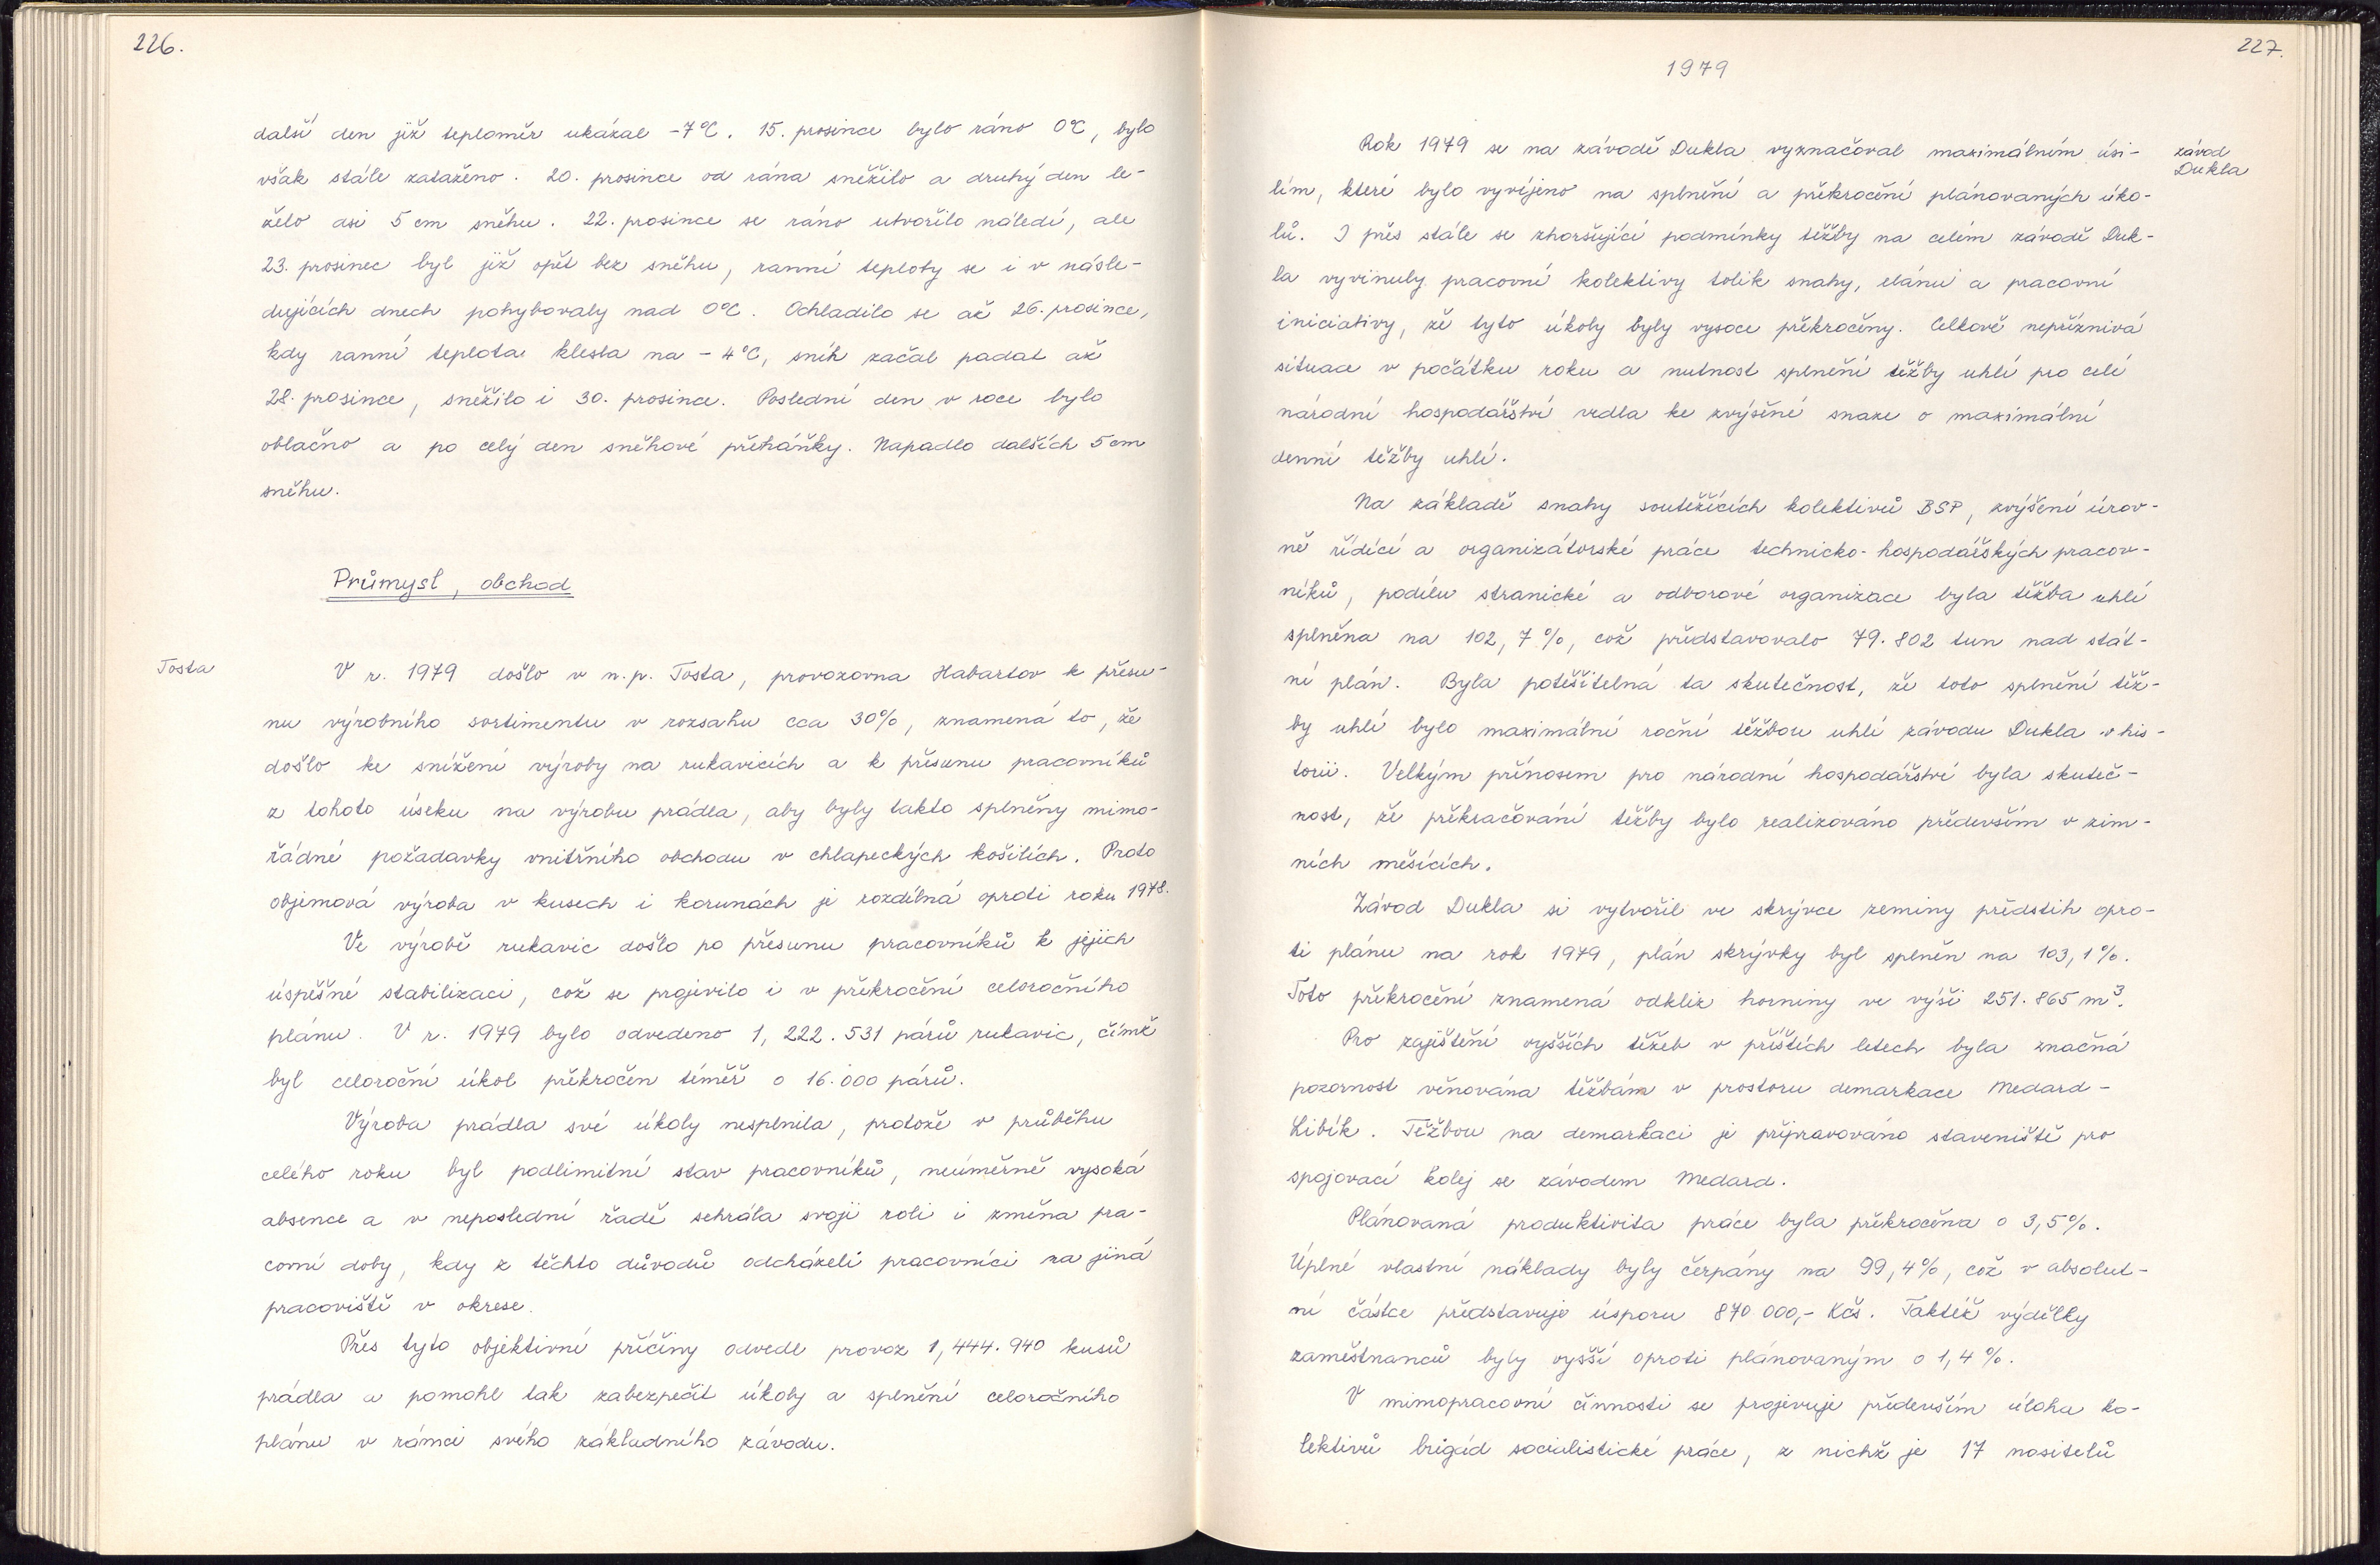 226.
další den již teploměr ukázal -7°C. 15. prosince bylo ráno 0°C, bylo
však stále zataženo. 20. prosince od rána sněžilo a druhý den le-
želo asi 5 cm sněhu. 22. prosince se ráno utvořilo náledí, ale
23. prosinec byl již opět bez sněhu, ranní teploty se i v násle-
dujících dnech pohybovaly nad 0°C. Ochladilo se až 26. prosince,
kdy ranní teplota klesla na -4°C, sníh začal padat až
28. prosince, sněžilo i 30. prosince. Poslední den v roce bylo
oblačno a po celý den sněhové přeháňky. Napadlo dalších 5 cm
sněhu.
Průmysl, obchod
Tosta
V r. 1979 došlo v n.p. Tosta, provozovna Habartov k přesu-
nu výrobního sortimentu v rozsahu cca 30%, znamená to, že
došlo ke snížení výroby na rukavicích a k přesunu pracovníků
z tohoto úseku na výrobu prádla, aby byly takto splněny mimo-
řádné požadavky vnitřního obchodu v chlapeckých košilích. Proto
objemová výroba v kusech i korunách je rozdílná oproti roku 1978.
Ve výrobě rukavic došlo po přesunu pracovníků k jejich
úspěšné stabilizaci, což se projevilo i v překročení celoročního
plánu. V r. 1979 bylo odvedeno 1,222.531 párů rukavic, čímž
byl celoroční úkol překročen téměř o 16.000 párů.
Výroba prádla své úkoly nesplnila, protože v průběhu
celého roku byl podlimitní stav pracovníků, neúměrně vysoká
absence a v neposlední řadě sehrála svoji roli i změna pra-
covní doby, kdy z těchto důvodů odcházeli pracovníci na jiná
pracoviště v okrese.
Přes tyto objektivní příčiny odvedl provoz 1,444.940 kusů
prádla a pomohl tak zabezpečit úkoly a splnění celoročního
plánu v rámci svého základního závodu.
227.
1979
závod
Dukla
Rok 1979 se na závodě Dukla vyznačoval maximálním úsi-
lím, které bylo vyvíjeno na splnění a překročení plánovaných úko-
lů. I přes stále se zhoršující podmínky těžby na celém závodě Duk-
la vyvinuly pracovní kolektivy tolik snahy, elánu a pracovní
iniciativy, že tyto úkoly byly vysoce překročeny. Celkově nepříznivá
situace v počátku roku a nutnost splnění těžby uhlí pro celé
národní hospodářství vedla ke zvýšené snaze o maximální
denní těžby uhlí.
Na základě snahy soutěžících kolektivů BSP, zvýšení úrov-
ně řídící a organizátorské práce technicko-hospodářských pracov-
níků, podílu stranické a odborové organizace byla těžba uhlí
splněna na 102,7%, což představovalo 79.802 tun nad stát-
ní plán. Byla potěšitelná ta skutečnost, že toto splnění těž-
by uhlí bylo maximální roční těžbou uhlí závodu Dukla v his-
torii. Velkým přínosem pro národní hospodářství byla skuteč-
nost, že překračování těžby bylo realizováno především v zim-
ních měsících.
Závod Dukla si vytvořil ve skrývce zeminy předstih opro-
ti plánu na rok 1979, plán skrývky byl splněn na 103,1%.
Toto překročení znamená odkliz horniny ve výši 251.865 m³.
Pro zajištění vyšších těžeb v příštích letech byla značná
pozornost věnována těžbám v prostoru demarkace Medard-
Libík. Těžbou na demarkaci je připravováno staveniště pro
spojovací kolej se závodem Medard.
Plánovaná produktivita práce byla překročena o 3,5%.
Úplné vlastní náklady byly čerpány na 99,4%, což v absolut-
ní částce představuje úsporu 870 000,- Kčs. Taktéž výdělky
zaměstnanců byly vyšší oproti plánovaným o 1,4%.
V mimopracovní činnosti se projevuje především úloha ko-
lektivů brigád socialistické práce, z nichž je 17 nositelů